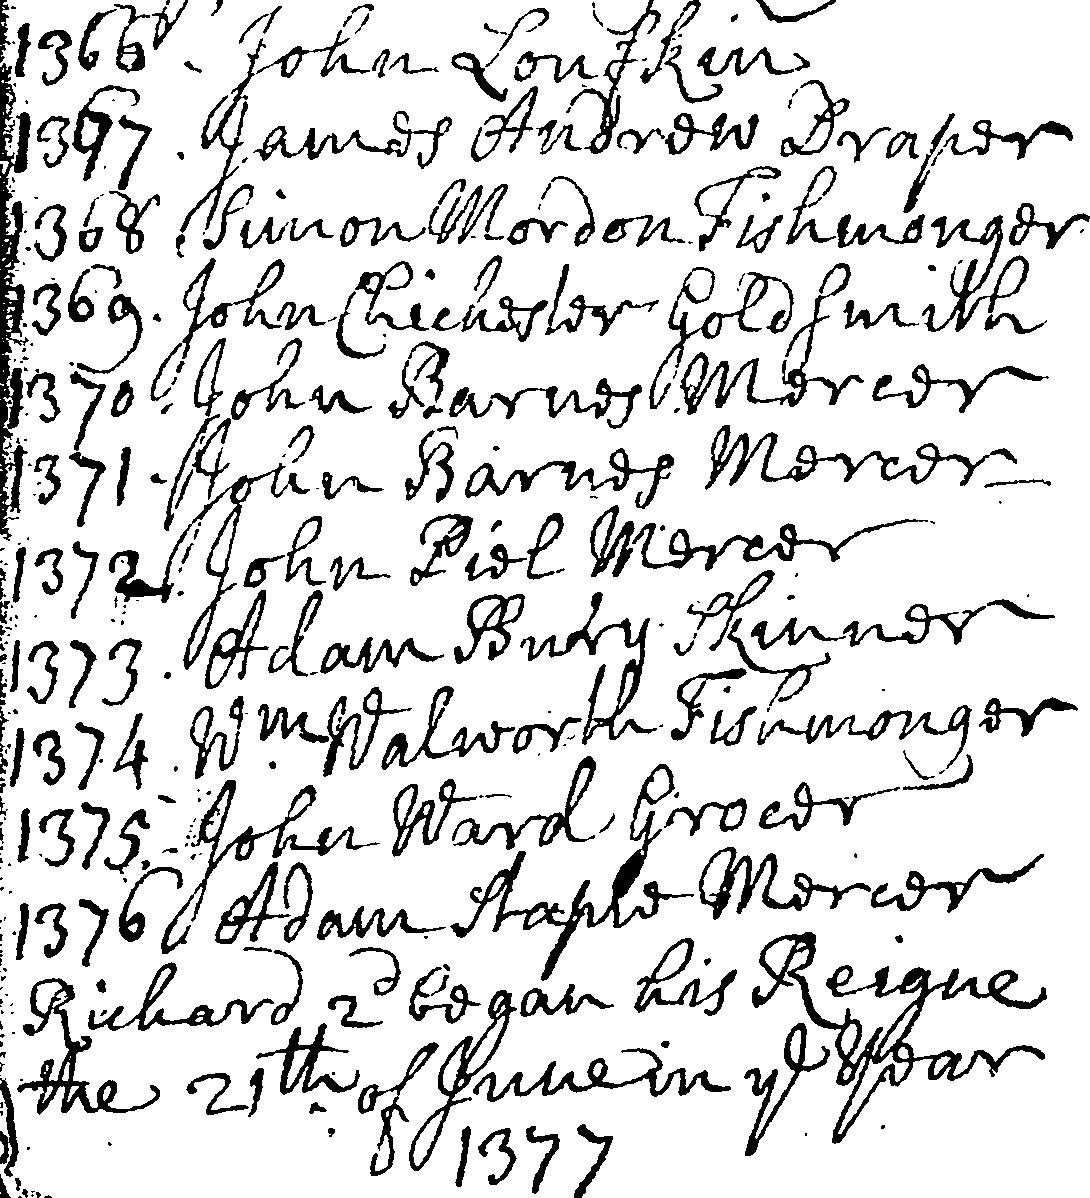 1366. John Loufkin
1367. James Andrew Draper
1368. Simon Mordon Fishmonger
1369. John Chichester Goldsmith
1370. John Barnes Mercer
1371. John Barnes Mercer
1372. John Piel Mercer
1373. Adam Bury Skinner
1374. Wm. Walworth Fishmonger
1375. John Ward Grocer
1376 Adam Staple Mercer
Richard 2d began his Reigne
the 21th. of June in ye Year
of 1377